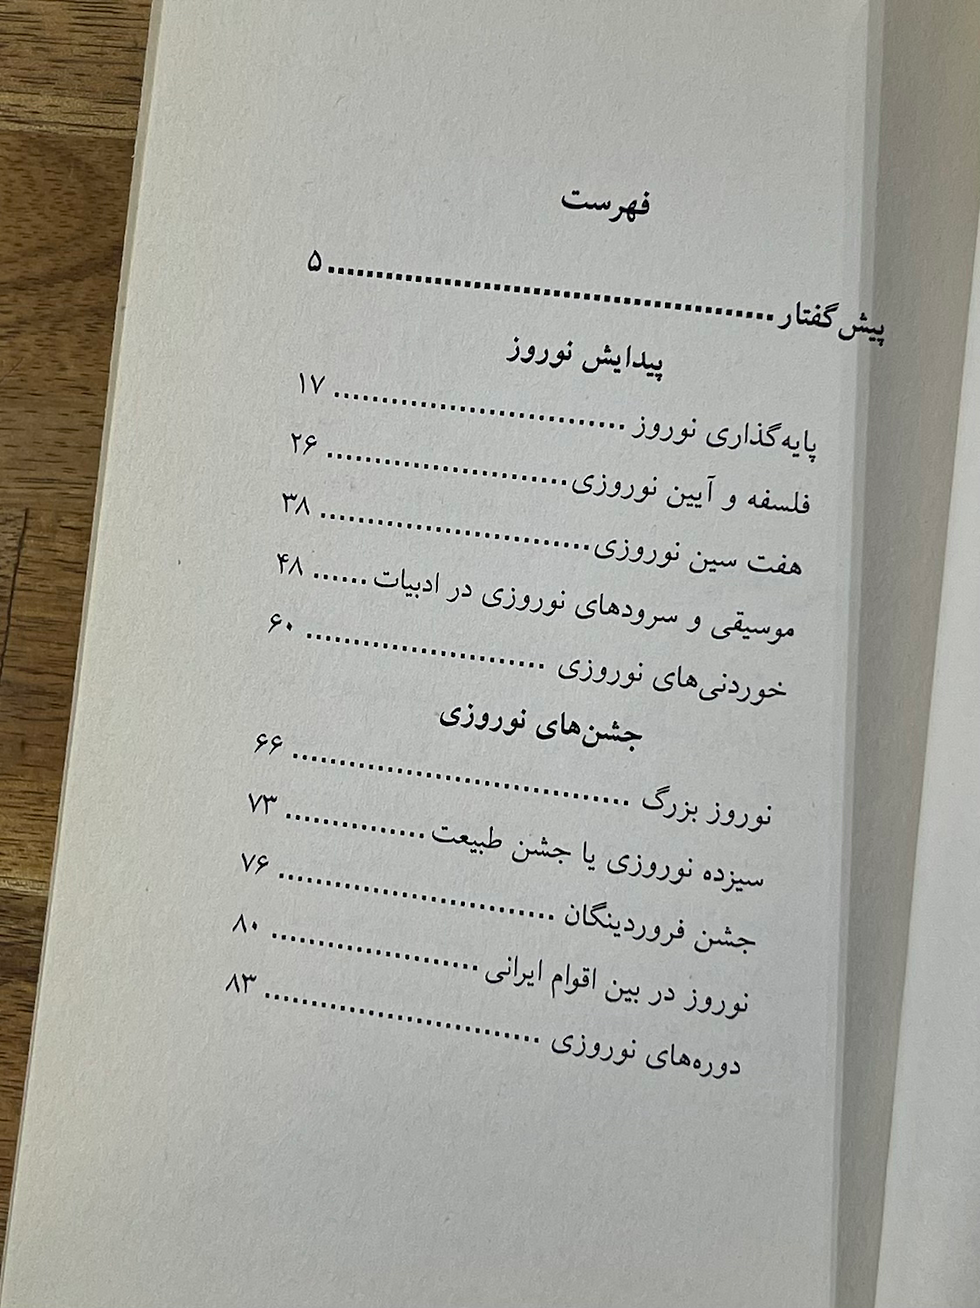 فهرست
پیش‌گفتار ........................................................ ۵
پیدایش نوروز
پایه‌گذاری نوروز ................................ ۱۷
فلسفه و آیین نوروزی .......................... ۲۶
هفت سین نوروزی ............................. ۳۸
موسیقی و سرودهای نوروزی در ادبیات ...... ۴۸
خوردنی‌های نوروزی .......................... ۶۰
جشن‌های نوروزی
نوروز بزرگ .................................... ۶۶
سیزده نوروزی یا جشن طبیعت ............... ۷۳
جشن فروردینگان .............................. ۷۶
نوروز در بین اقوام ایرانی ...................... ۸۰
دوره‌های نوروزی .............................. ۸۳